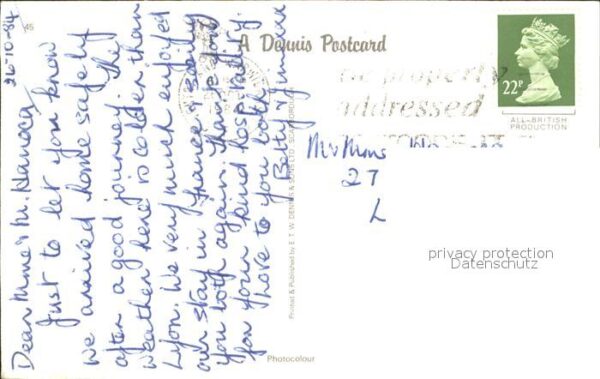 26-10-84
Dear Mr & Mrs M. Hanceq,
Just to let you know
we arrived home safely
after a good journey. The
weather here is colder than
Lyon. We very much enjoyed
our stay in France & seeing
you both again. Thanks also
for your kind hospitality.
Love to you both
Betty & Jimmie
45
A Dennis Postcard
be properly
addressed
22P
ALL-BRITISH
PRODUCTION
Mr Mrs
27
L
Printed & Published by E. T. W. DENNIS & SONS LTD. SCARBOROUGH
privacy protection
Datenschutz
Photocolour